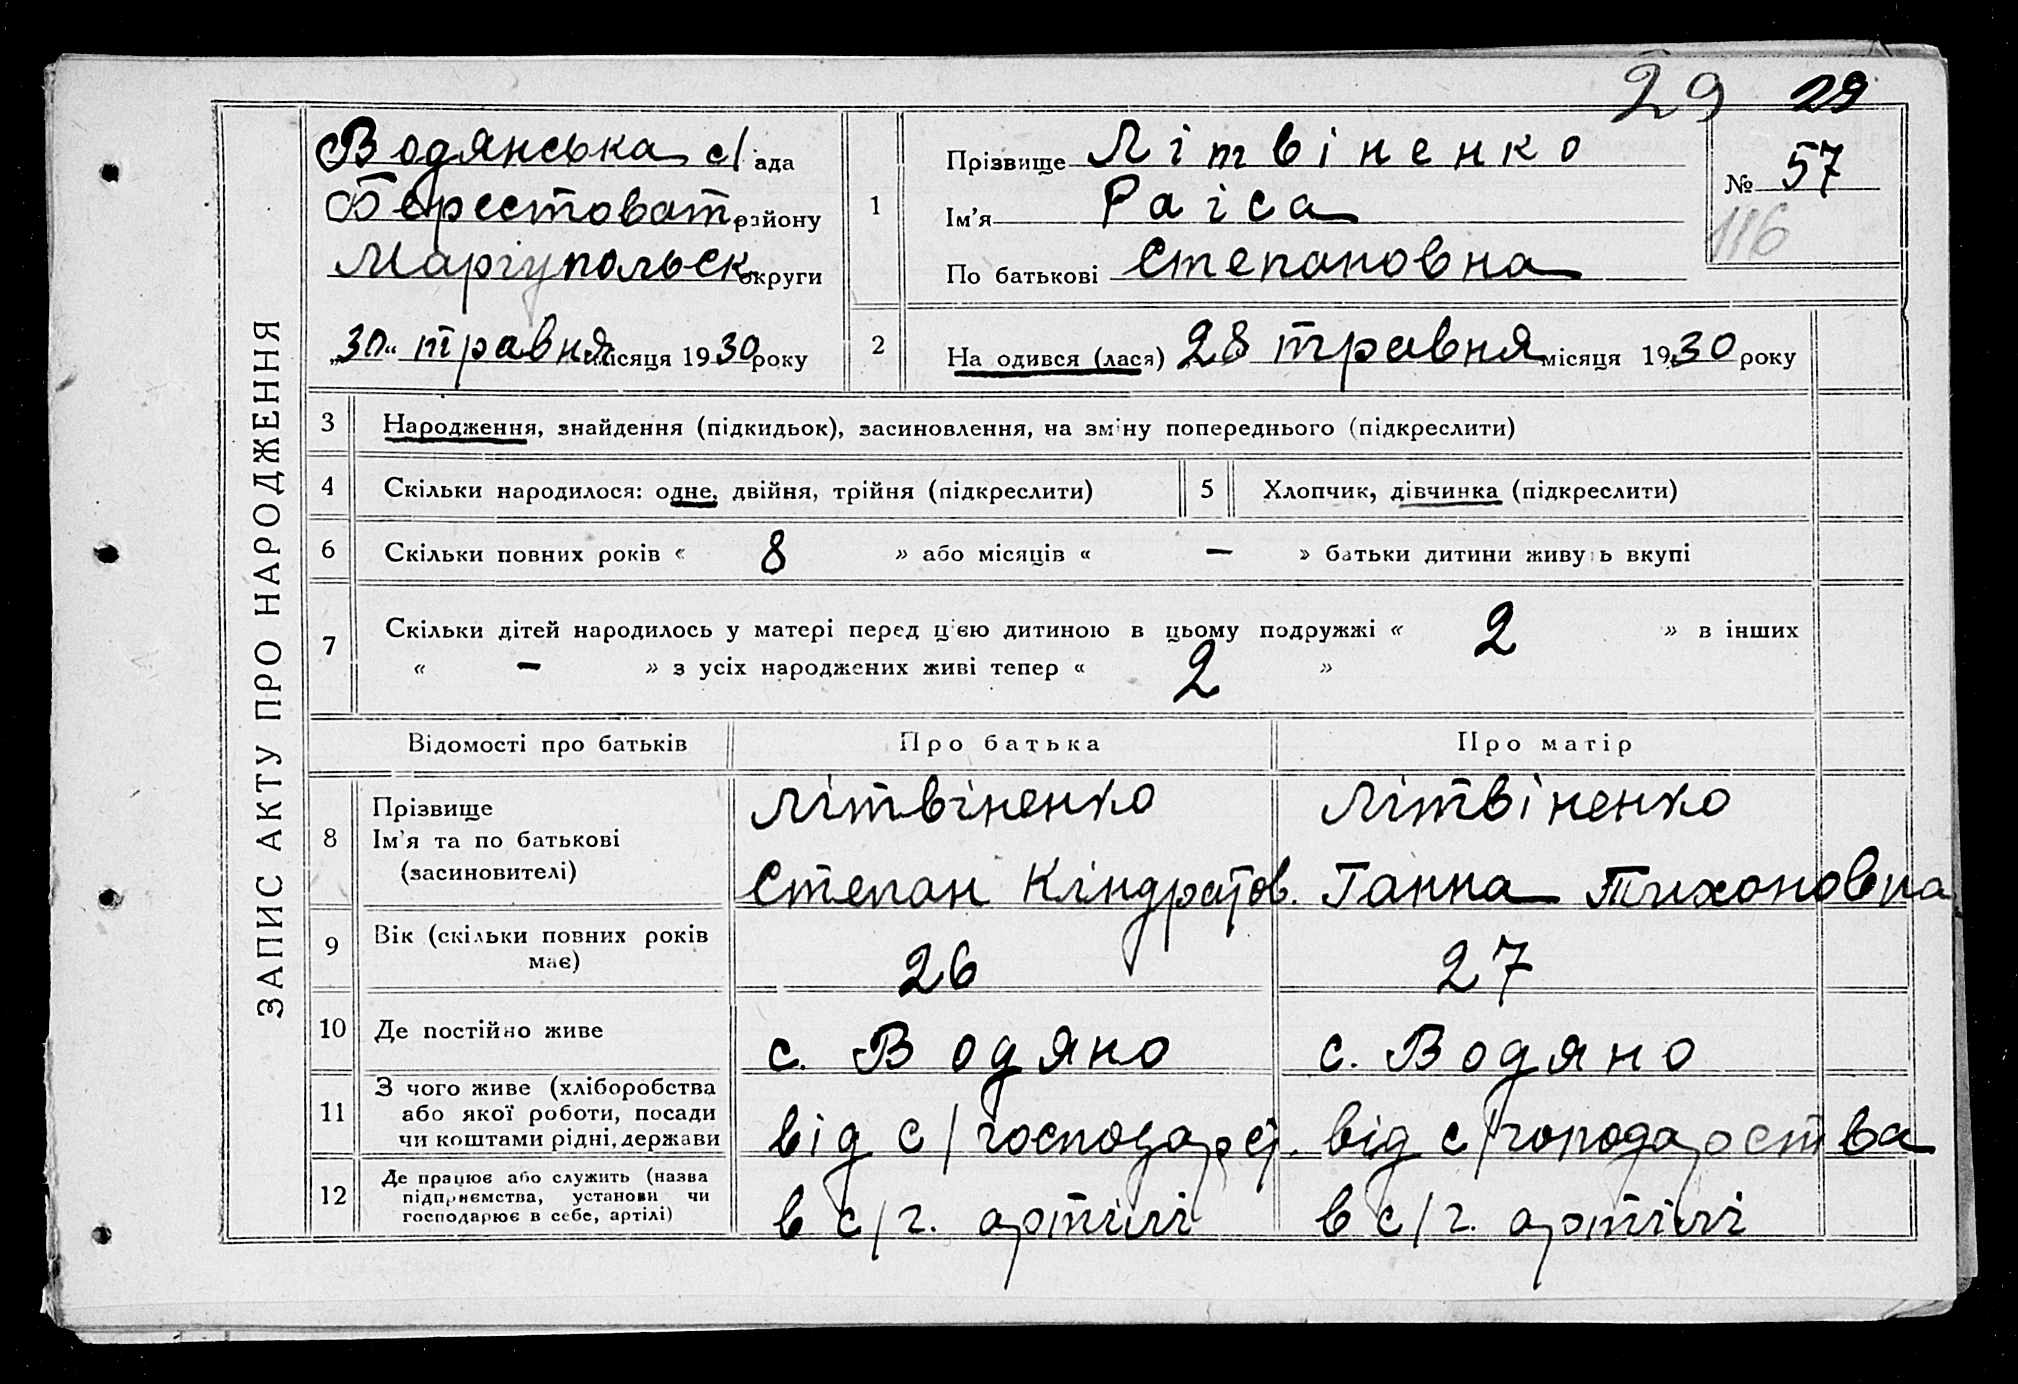 29 29
ЗАПИС АКТУ ПРО НАРОДЖЕННЯ
Водянська с/ ада
Берестоват району
Маріупольськ округи
„30“ травня місяця 1930 року
1
Прізвище Літвіненко
Ім’я Раіса
По батькові Степановна
№ 57
116
2
На одився (лася) 28 травня місяця 1930 року
3 Народження, знайдення (підкидьок), засиновлення, на зміну попереднього (підкреслити)
4 Скільки народилося: одне, двійня, трійня (підкреслити) 5 Хлопчик, дівчинка (підкреслити)
6 Скільки повних років « 8 » або місяців « — » батьки дитини живуть вкупі
7 Скільки дітей народилось у матері перед цією дитиною в цьому подружжі « 2 » в інших
« — » з усіх народжених живі тепер « 2 »
Відомості про батьків Про батька Про матір
8 Прізвище Літвіненко Літвіненко
Ім’я та по батькові
(засиновителі) Степан Кіндратов. Ганна Тихоновна
9 Вік (скільки повних років
має) 26 27
10 Де постійно живе с. Водяно с. Водяно
11 З чого живе (хліборобства
або якої роботи, посади
чи коштами рідні, держави від с/господарст. від с/господарства
12 Де працює або служить (назва
підприємства, установи чи
господарює в себе, артілі) в с/г. артілі в с/г. артілі